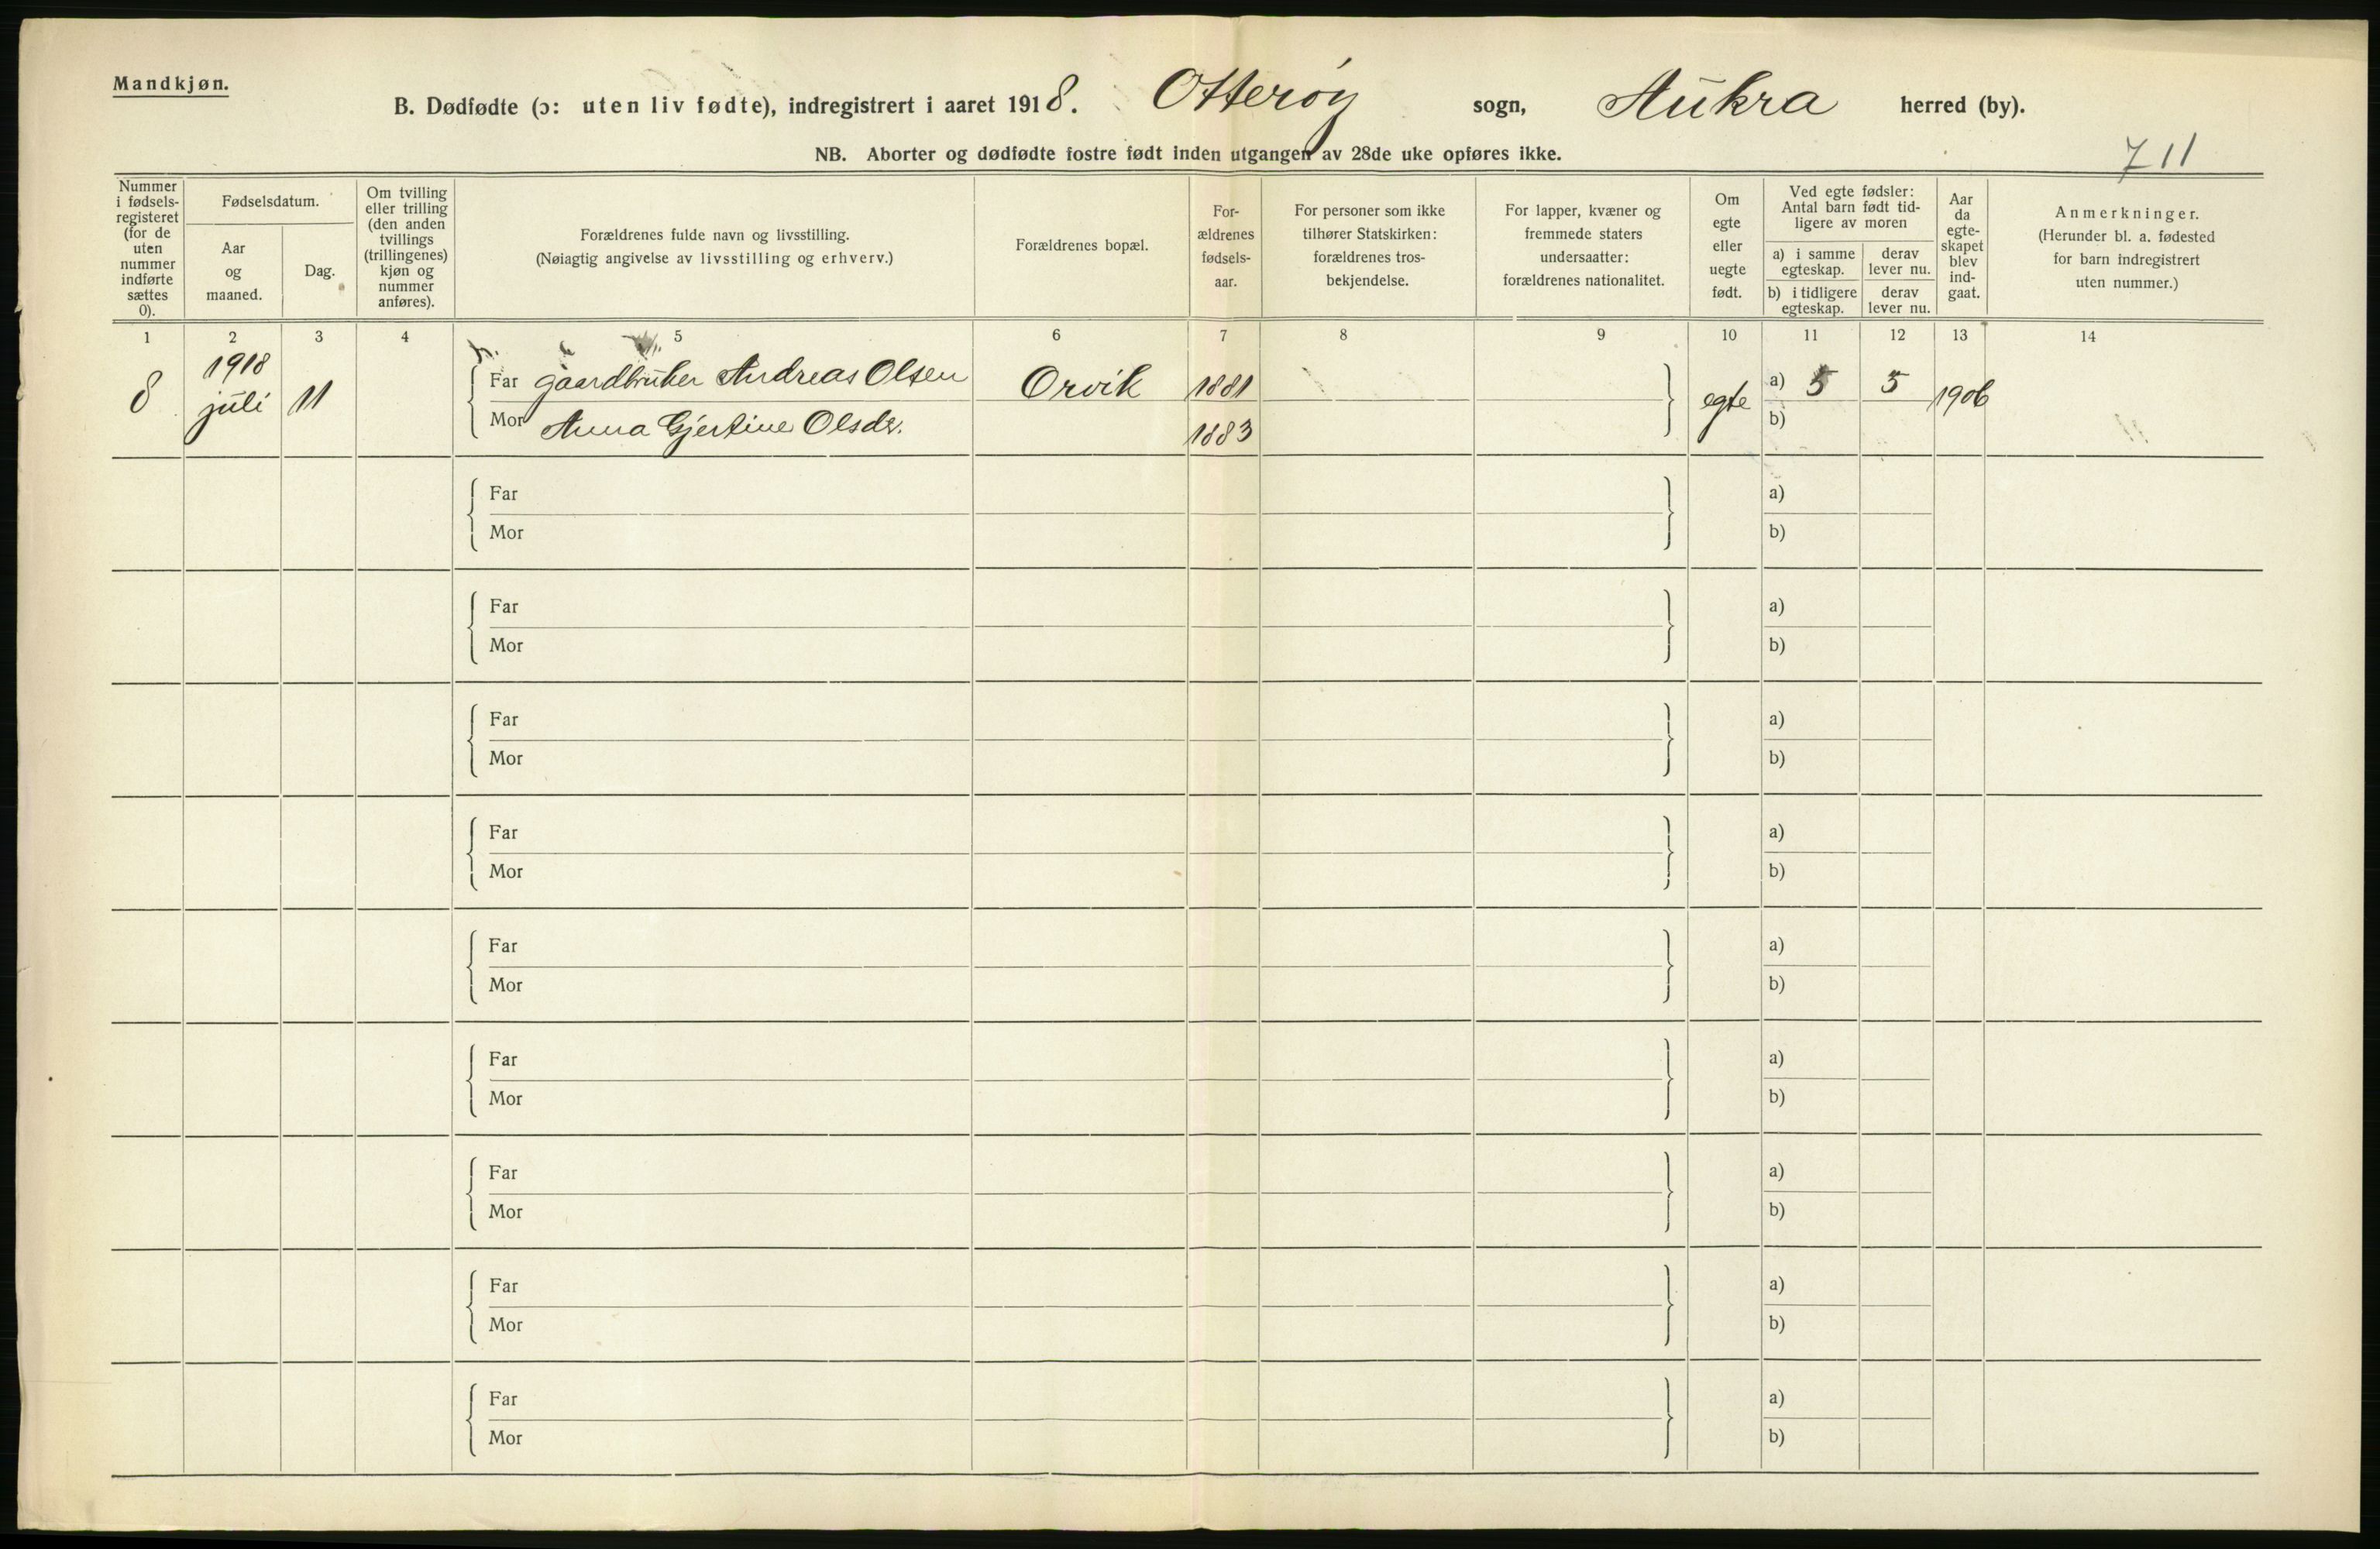 Mandkjøn.
B. Dødfødte (ɔ: uten liv fødte), indregistrert i aaret 1918. Otterøy sogn, Aukra herred (by).
NB. Aborter og dødfødte fostre født inden utgangen av 28de uke opføres ikke.
711
Nummer i fødsels-registeret (for de uten nummer indførte sættes 0).
Fødselsdatum.
Aar og maaned.
Dag.
Om tvilling eller trilling (den anden tvillings (trillingenes) kjøn og nummer anføres).
Forældrenes fulde navn og livsstilling.
(Nøiagtig angivelse av livsstilling og erhverv.)
Forældrenes bopæl.
For-ældrenes fødsels-aar.
For personer som ikke tilhører Statskirken: forældrenes tros-bekjendelse.
For lapper, kvæner og fremmede staters undersaatter: forældrenes nationalitet.
Om egte eller uegte født.
Ved egte fødsler: Antal barn født tid-ligere av moren
a) i samme egteskap.
derav lever nu.
b) i tidligere egteskap.
derav lever nu.
Aar da egte-skapet blev ind-gaat.
Anmerkninger.
(Herunder bl. a. fødested for barn indregistrert uten nummer.)
1 2 3 4 5 6 7 8 9 10 11 12 13 14
8 1918 juli 11
Far gaardbruker Andreas Olsen Orvik 1881 egte a) 5 5 1906
Mor Anna Gjertine Olsdr. 1883 b)
Far a)
Mor b)
Far a)
Mor b)
Far a)
Mor b)
Far a)
Mor b)
Far a)
Mor b)
Far a)
Mor b)
Far a)
Mor b)
Far a)
Mor b)
Far a)
Mor b)